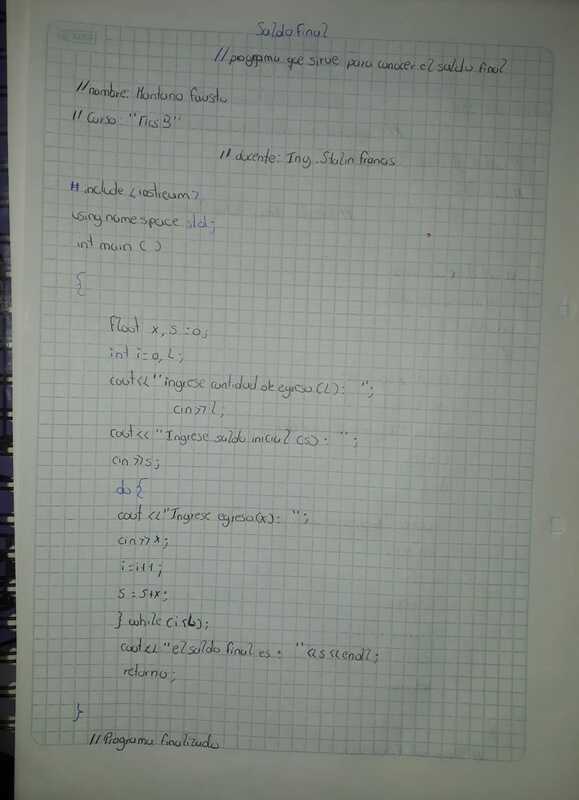 Saldo Final
// programa que sirve para conocer el saldo final
// nombre: Montano Fausto
// Curso: "Tics B"
// docente: Ing. Stalin francis
# include <iostream>
using namespace std;
int main ( )
{
float x, s = 0;
int i=0, L;
cout<<"ingrese cantidad de egreso (L): ";
cin>>l;
cout<< "Ingrese saldo inicial (s): ";
cin>>s;
do {
cout <<"Ingrese egreso(x): ";
cin>>x;
i=i+1;
s = s+x;
} while (i<L);
cout<< "el saldo final es: "<<s<<endl;
return 0;
}
// Programa finalizado